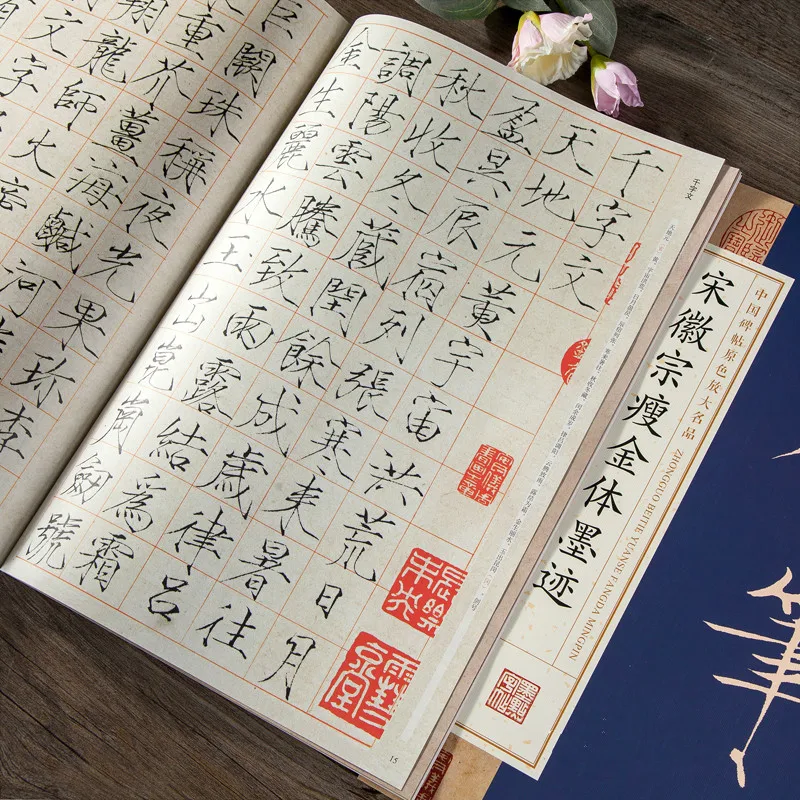 千字文
天地元黄宇宙洪荒日月
盈昃辰宿列張寒来暑往
秋收冬藏閏餘成歳律吕
調陽雲騰致雨露結為霜
金生麗水玉出崑崗劍號
巨闕珠稱夜光果珍李
重芥薑海鹹河
翔龍師火
文字
千字文
15
中国碑帖原色放大名品
宋徽宗瘦金体墨迹
ZHONGGUO BEITIE YUANSE FANGDA MINGPIN
筆